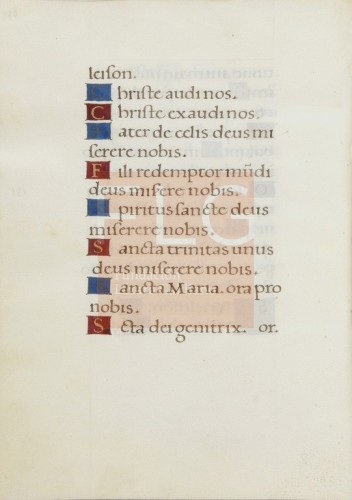 leison.
Christe audi nos.
Christe exaudi nos.
Pater de celis deus mi
serere nobis.
Fili redemptor mūdi
deus misere nobis.
Spiritus sancte deus
miserere nobis.
Sancta trinitas unus
deus miserere nobis.
Sancta Maria. ora pro
nobis.
Scta dei genitrix. or.
FLG